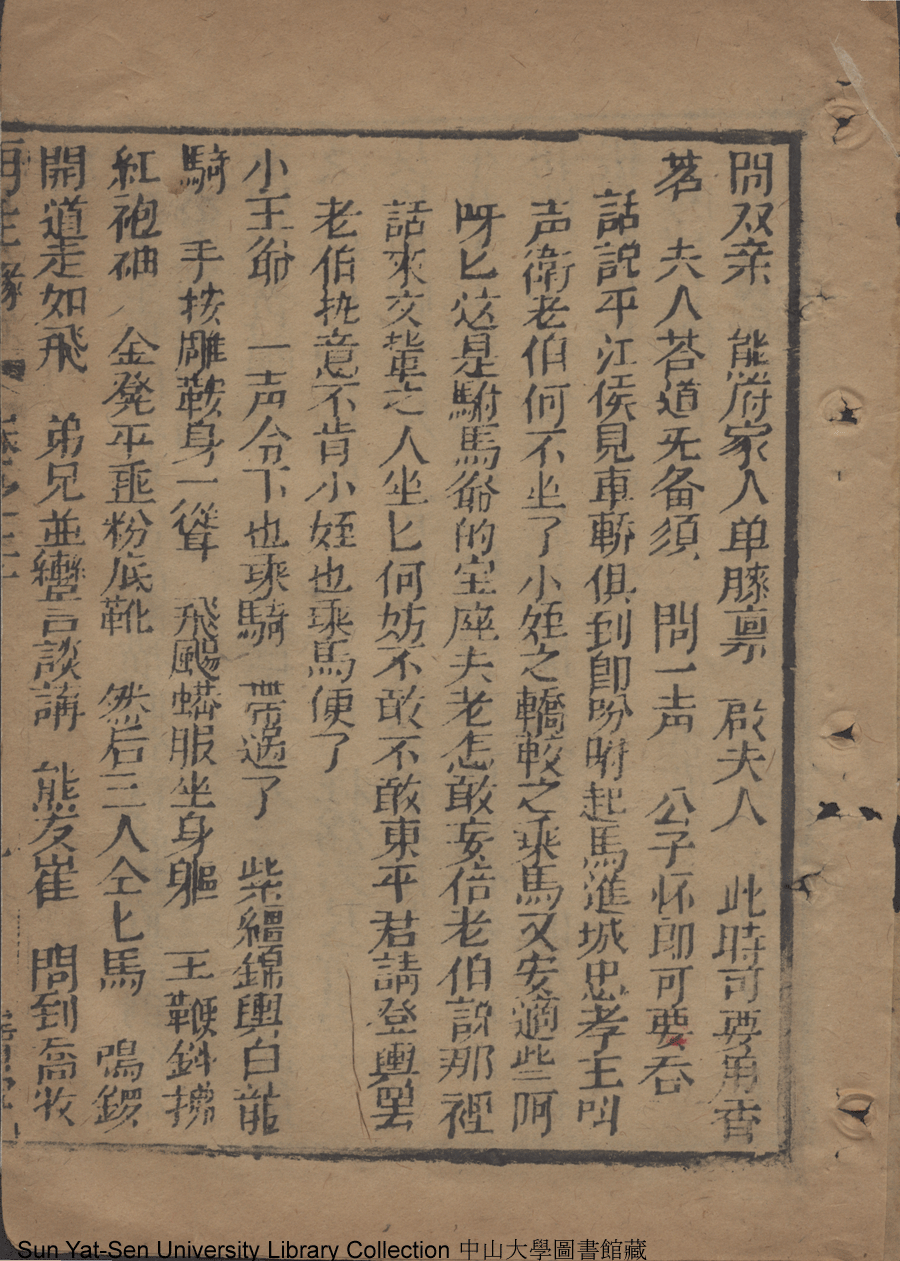 問双亲　熊府家人单膝禀　啟夫人　此時可要用香
茗　夫人荅道旡备须　問一声　公子怀郎可要吞
話說平江侯見車轎俱到即吩咐起馬進城忠孝王叫
声衛老伯何不坐了小姪之轎較之乘馬又安適些呵
呀匕这是駙馬爺的宝座夫老怎敢妄倍老伯說那裡
話來交輩之人坐匕何妨不敢不敢東平君請登輿罢
老伯执意不肯小姪也乘馬便了
小王爺　一声令下也乘騎　带過了　柴繮錦輿白龍
騎　手按雕鞍身一聳　飛颺蟒服坐身軀　王鞭斜拂
紅袍袖　金凳平垂粉底靴　然后三人仝匕馬　鳴鑼
開道走如飛　弟兄並轡言談講　熊友崔　問到喬妆
再生緣　卷之十
Sun Yat-Sen University Library Collection 中山大學圖書館藏